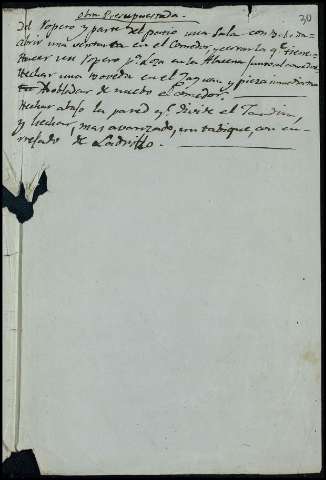 obra Presupuestada.
30
Del Ropero y parte del patio una Sala con
abrir una ventana en el Comedor, y cerrar la qe. tiene
Hacer un Ropero pa. loza en la Alacena junto al comedor
Hechar una boveda en el Zaguan y pieza inmediata
Enladrillar de nuevo el Comedor.
Hechar abajo la pared qe. divide el Jardin,
y hechar, mas avanzado, un tabique, con en-
rejado de Ladrillo.